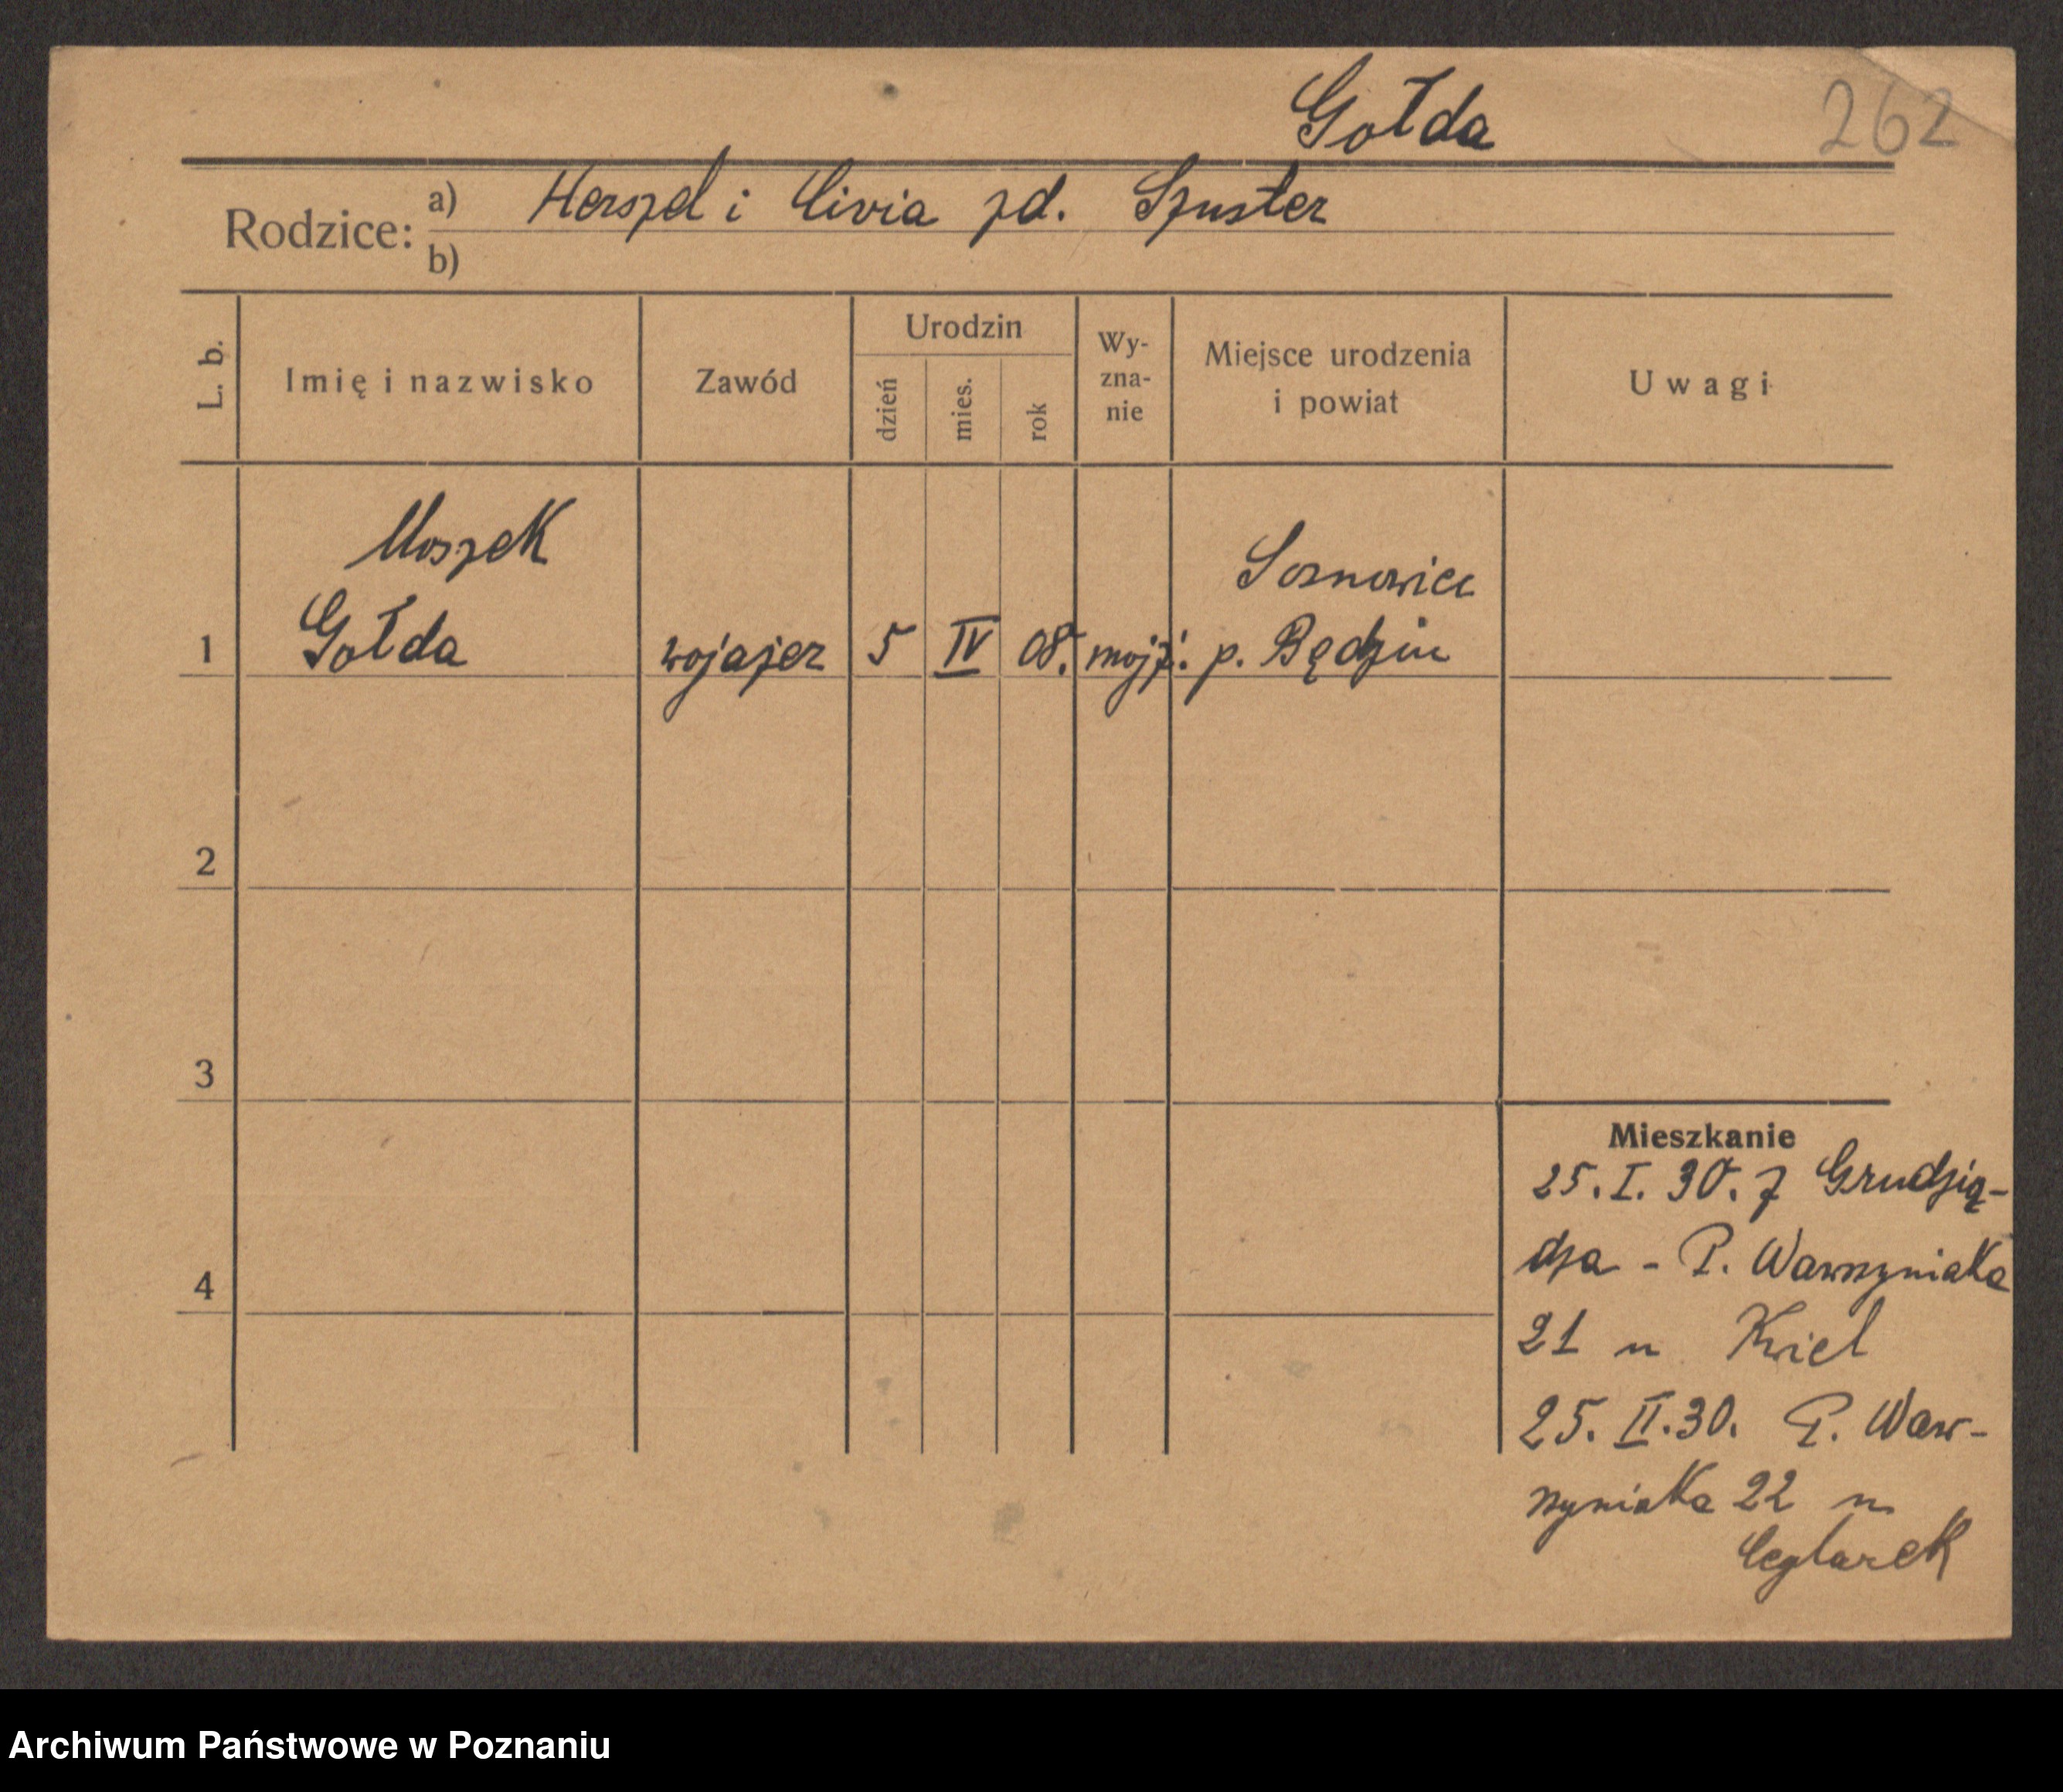 Gołda
262
Rodzice: a) Herszel i Civia zd. Szuster
b)
L. b.
Imię i nazwisko
Zawód
Urodzin
dzień
mies.
rok
Wy-
zna-
nie
Miejsce urodzenia
i powiat
Uwagi
Moszek
Sosnowiec
1 Gołda wojażer 5 IV 08. mojż. p. Będzin
2
3
4
Mieszkanie
25. I. 30. z Grudzią-
dza - P. Wawrzyniaka
21 u Kiel
25. II. 30. P. Waw-
rzyniaka 22 u
Ceglarek
Archiwum Państwowe w Poznaniu